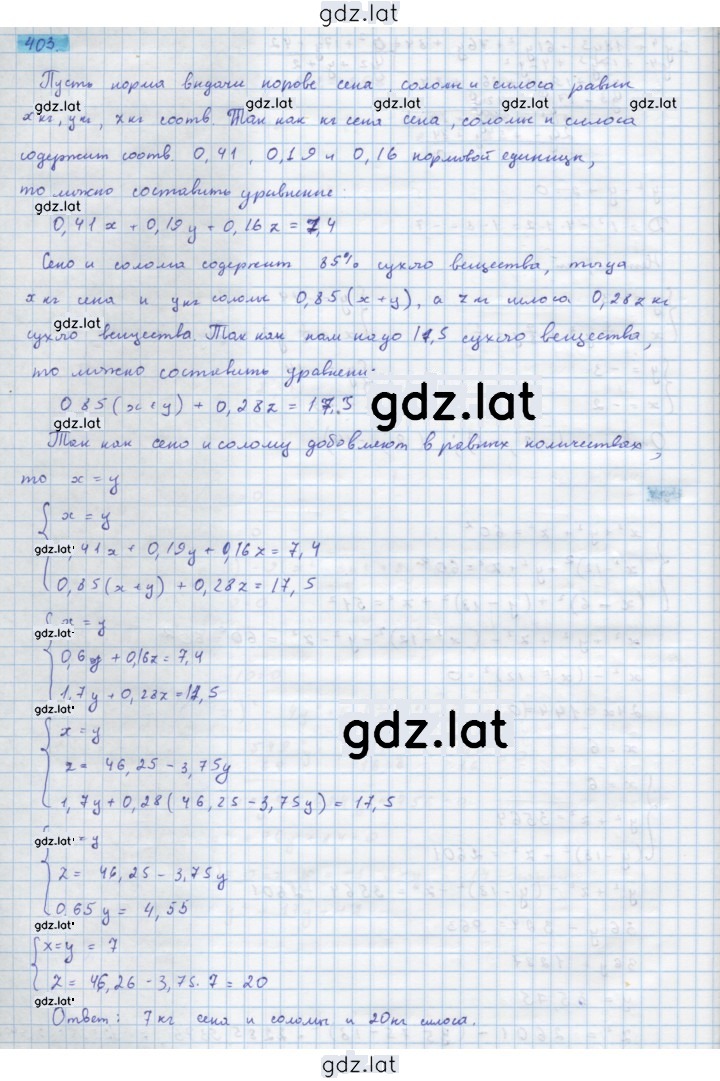 gdz.lat
403.
Пусть норма выдачи корове сена, соломы и силоса равны
gdz.lat gdz.lat gdz.lat gdz.lat
х кг, у кг, х кг соотв. Так как кг сена сена, соломы и силоса
содержит соотв. 0,41, 0,19 и 0,16 кормовой единицы,
то можно составить уравнение:
gdz.lat
0,41x + 0,19y + 0,16z = 7,4
Сено и солома содержит 85% сухого вещества, тогда
х кг сена и у кг соломы 0,85(x+y), а z м силоса 0,28z кг
gdz.lat
сухого вещества. Так как нам надо 17,5 сухого вещества,
то можно составить уравнени.
0.85(x+y) + 0,28z = 17.5
gdz.lat
gdz.lat
Так как сено и солому добовляют в равных количествах,
то x = y
x = y
gdz.lat ,41x + 0,19y + 0,16z = 7,4
0,85(x+y) + 0,28z = 17,5
x = y
gdz.lat
0,6y + 0,16z = 7,4
1.7y + 0,28z = 17,5
gdz.lat
x = y
gdz.lat
z = 46,25 - 3,75y
1,7y + 0,28(46,25 - 3,75y) = 17,5
gdz.lat = y
z = 46,25 - 3,75y
0.65y = 4,55
gdz.lat
x = y = 7
z = 46,26 - 3,75·7 = 20
gdz.lat
Ответ: 7 кг сена и соломы и 20 кг силоса.
gdz.lat